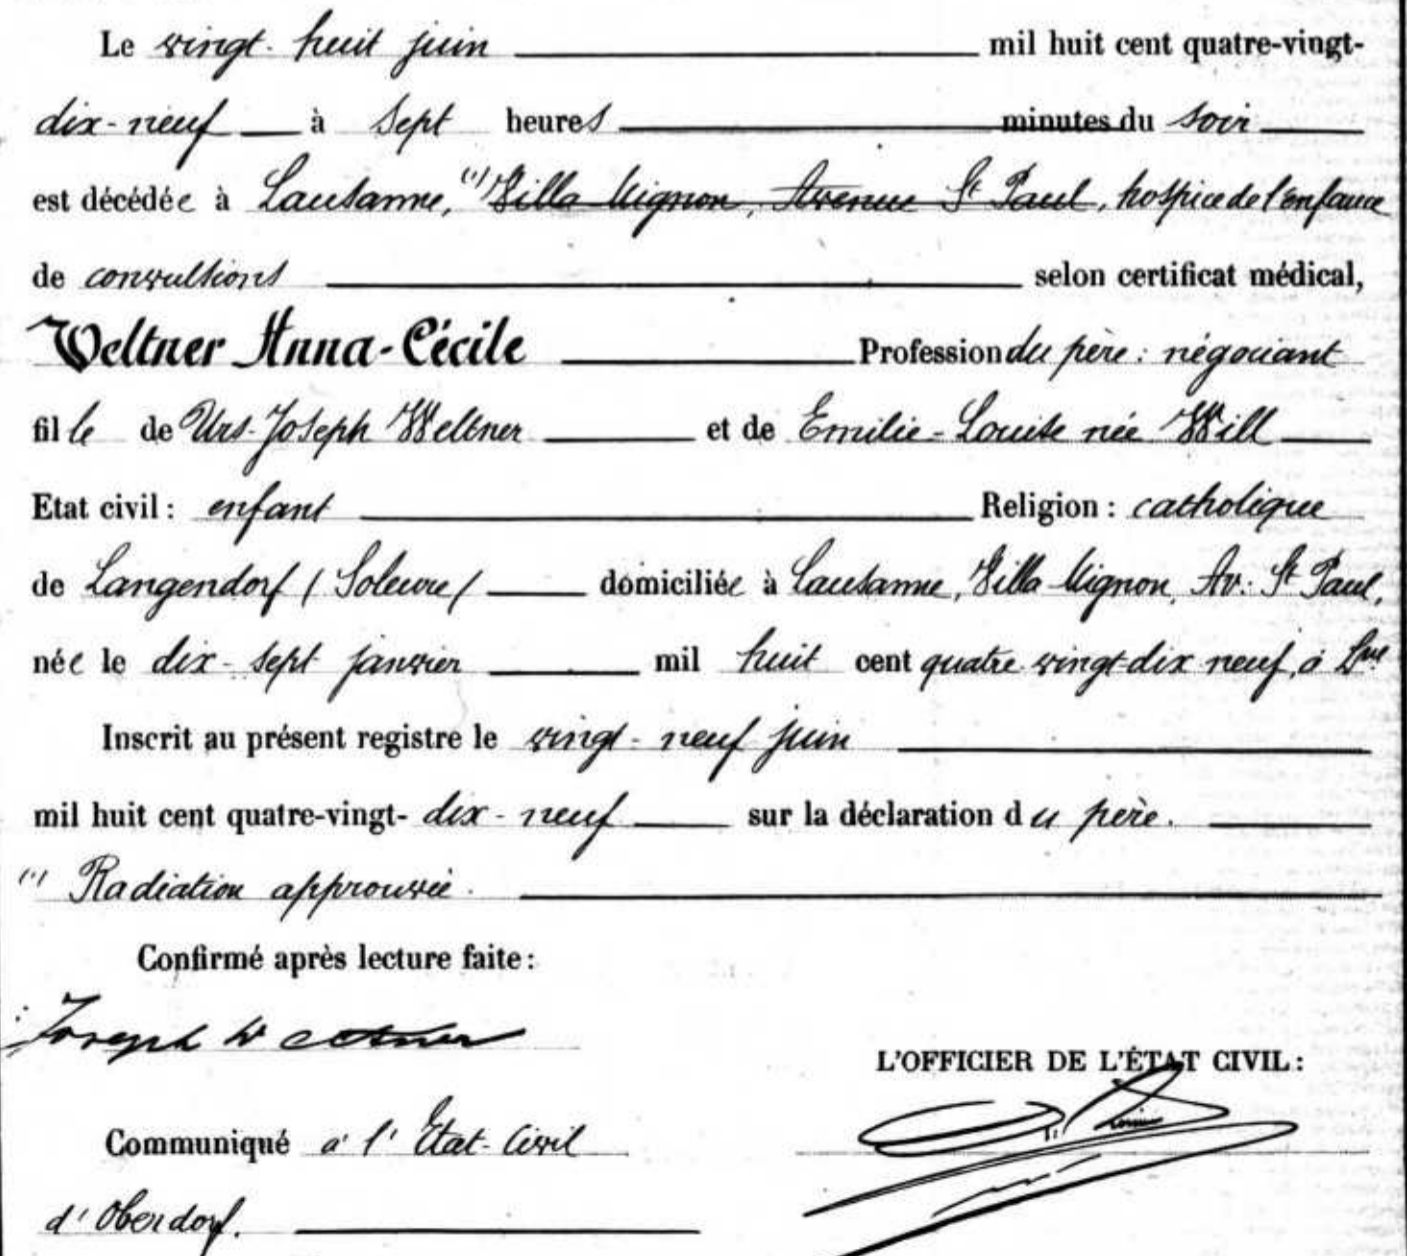 Le vingt-huit juin mil huit cent quatre-vingt-
dix-neuf à sept heures minutes du soir
est décédée à Lausanne, (1) Villa Mignon, Avenue St Paul, hospice de l'enfance
de convulsions selon certificat médical,
Weltner Anna-Cécile Profession du père : négociant
fille de Urs-Joseph Weltner et de Emilie-Louise née Will
Etat civil : enfant Religion : catholique
de Langendorf (Soleure) domiciliée à Lausanne, Villa Mignon, Av: St Paul,
née le dix-sept janvier mil huit cent quatre vingt-dix neuf, à Lne
Inscrit au présent registre le vingt-neuf juin
mil huit cent quatre-vingt-dix-neuf sur la déclaration du père.
(1) Radiation approuvée.
Confirmé après lecture faite :
Joseph Weltner
L'OFFICIER DE L'ÉTAT CIVIL :
Communiqué à l'Etat-Civil
d'Oberdorf.